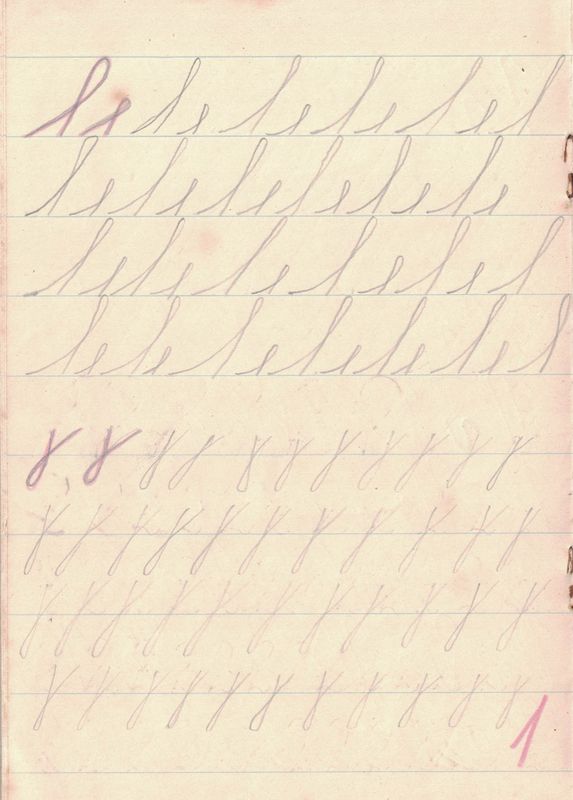 l e l e l e l e l e l
l e l e l e l e l e l e
l e l e l e l e l e l
l e l e l e l e l e l e l
ɣ ɣ ɣ ɣ ɣ ɣ ɣ ɣ ɣ ɣ ɣ
ɣ ɣ ɣ ɣ ɣ ɣ ɣ ɣ ɣ ɣ ɣ
ɣ ɣ ɣ ɣ ɣ ɣ ɣ ɣ ɣ ɣ ɣ
ɣ ɣ ɣ ɣ ɣ ɣ ɣ ɣ ɣ ɣ ɣ
1